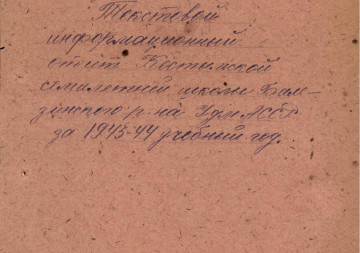 Текстовой
информационный
отчёт Кестымской
семилетней школы Бале-
зинского р-на Удм АССР
за 1943-44 учебный год.